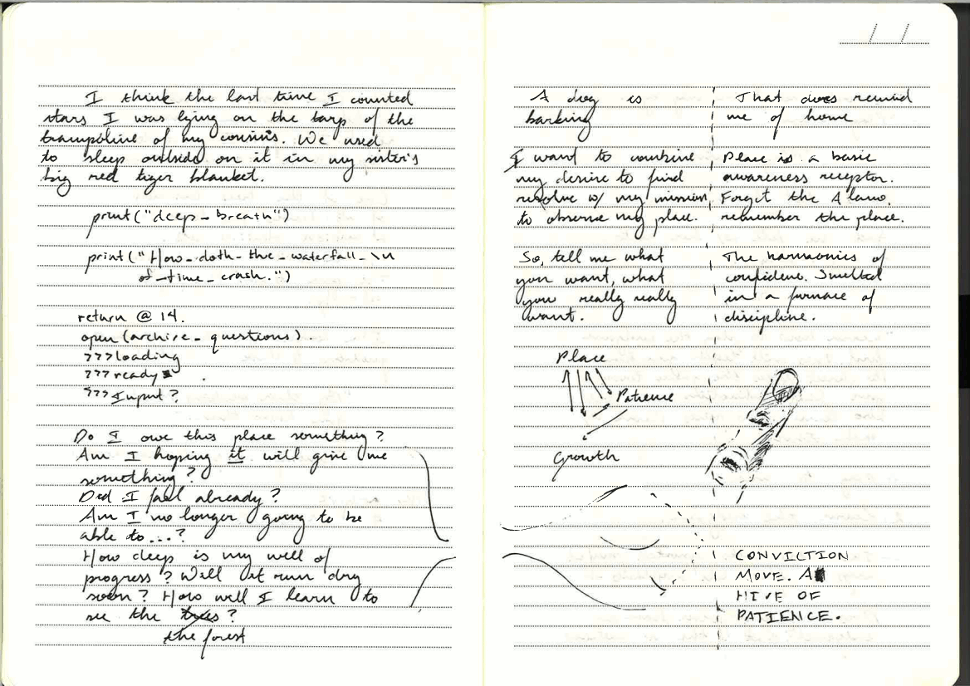 I think the last time I counted
stars I was lying on the tarp of the
trampoline of my cousin's. We used
to sleep outside on it in my sister's
big red tiger blanket.
print("deep_breath")
print("How_doth_the_waterfall_\n
of_time_crash.")
return @ 14.
open(archive_questions).
???loading
???ready
???Input?
Do I owe this place something?
Am I hoping it will give me
something?
Did I fail already?
Am I no longer going to be
able to...?
How deep is my well of
progress? Will it run dry
soon? How will I learn to
see the trees?
the forest
A dog is
barking
I want to combine
my desire to find
resolve w/ my mission
to observe my place.
So, tell me what
you want, what
you really really
want.
Place
Patience
Growth
That does remind
me of home
Place is a basic
awareness receptor.
Forget the
remember the place.
The harmonics of
confidence. Smelted
in a furnace of
discipline.
CONVICTION
MOVE. A
HIVE OF
PATIENCE.